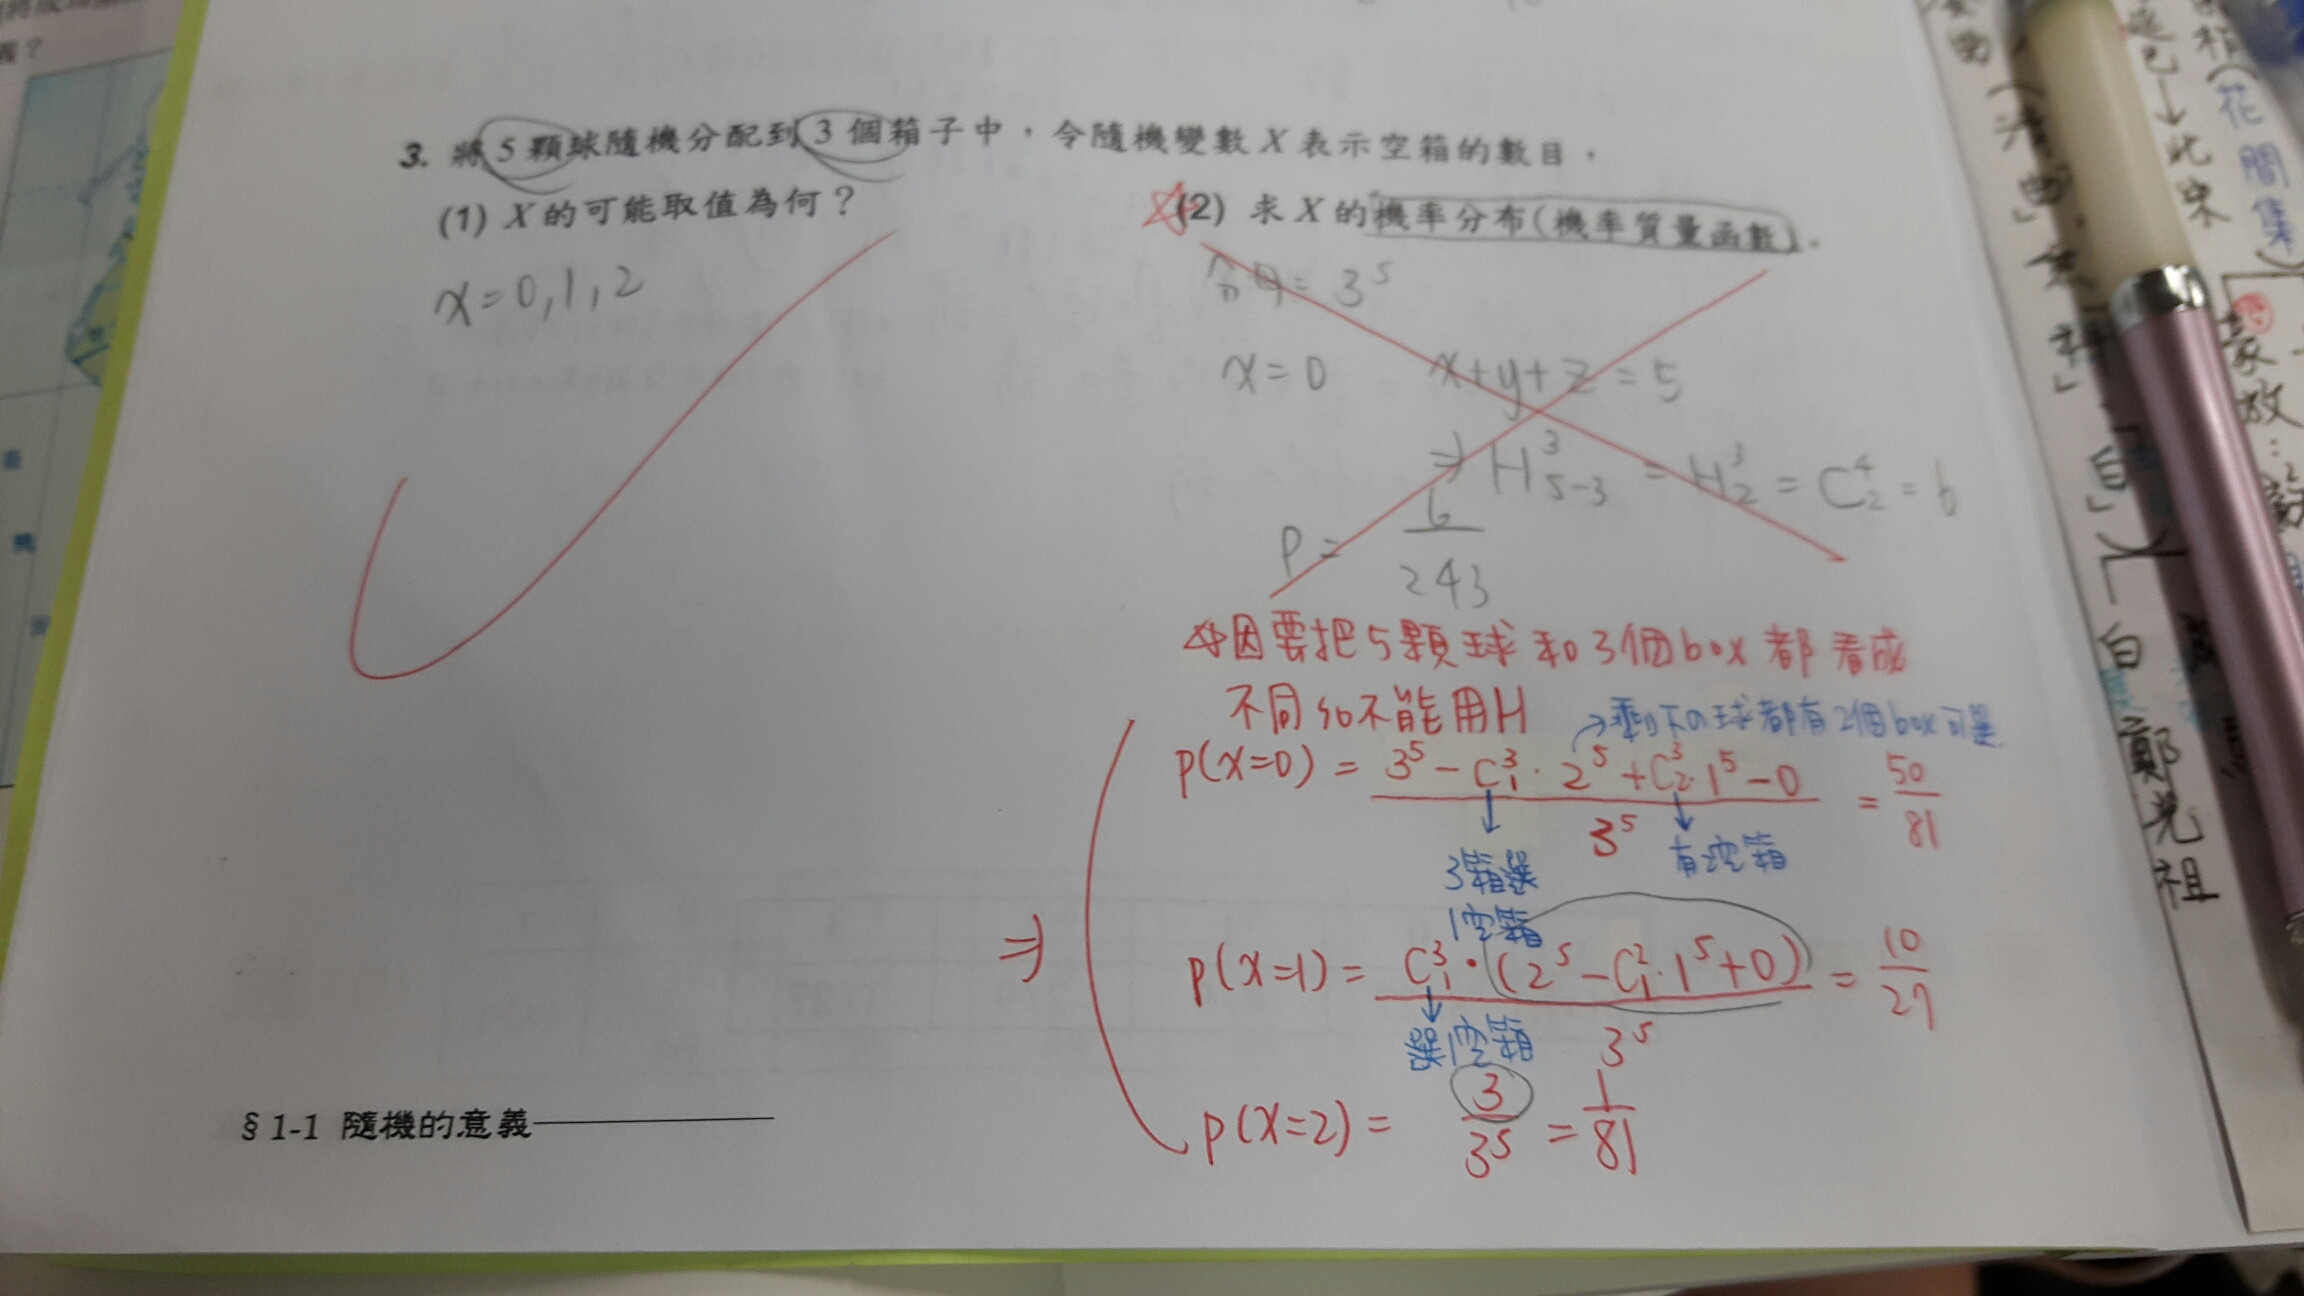 義？
3. 將5顆球隨機分配到3個箱子中，令隨機變數X表示空箱的數目，
(1) X的可能取值為何？
x=0,1,2
(2) 求X的機率分布(機率質量函數)．
分母=3⁵
x=0 x+y+z=5
⇒ H³₅₋₃ = H³₂ = C⁴₂ = 6
P = 6/243
因要把5顆球和3個box都看成
不同 so不能用H
→剩下の球都有2個box可選
P(x=0) = (3⁵ − C³₁·2⁵ + C³₂·1⁵ − 0)/3⁵ = 50/81
↓ 3箱選
1空箱
↓ 有空箱
⇒ P(x=1) = C³₁·(2⁵ − C²₁·1⁵ + 0)/3⁵ = 10/27
↓ 選1空箱
P(x=2) = 3/3⁵ = 1/81
§1-1 隨機的意義
(花間集)
白
鄭光祖